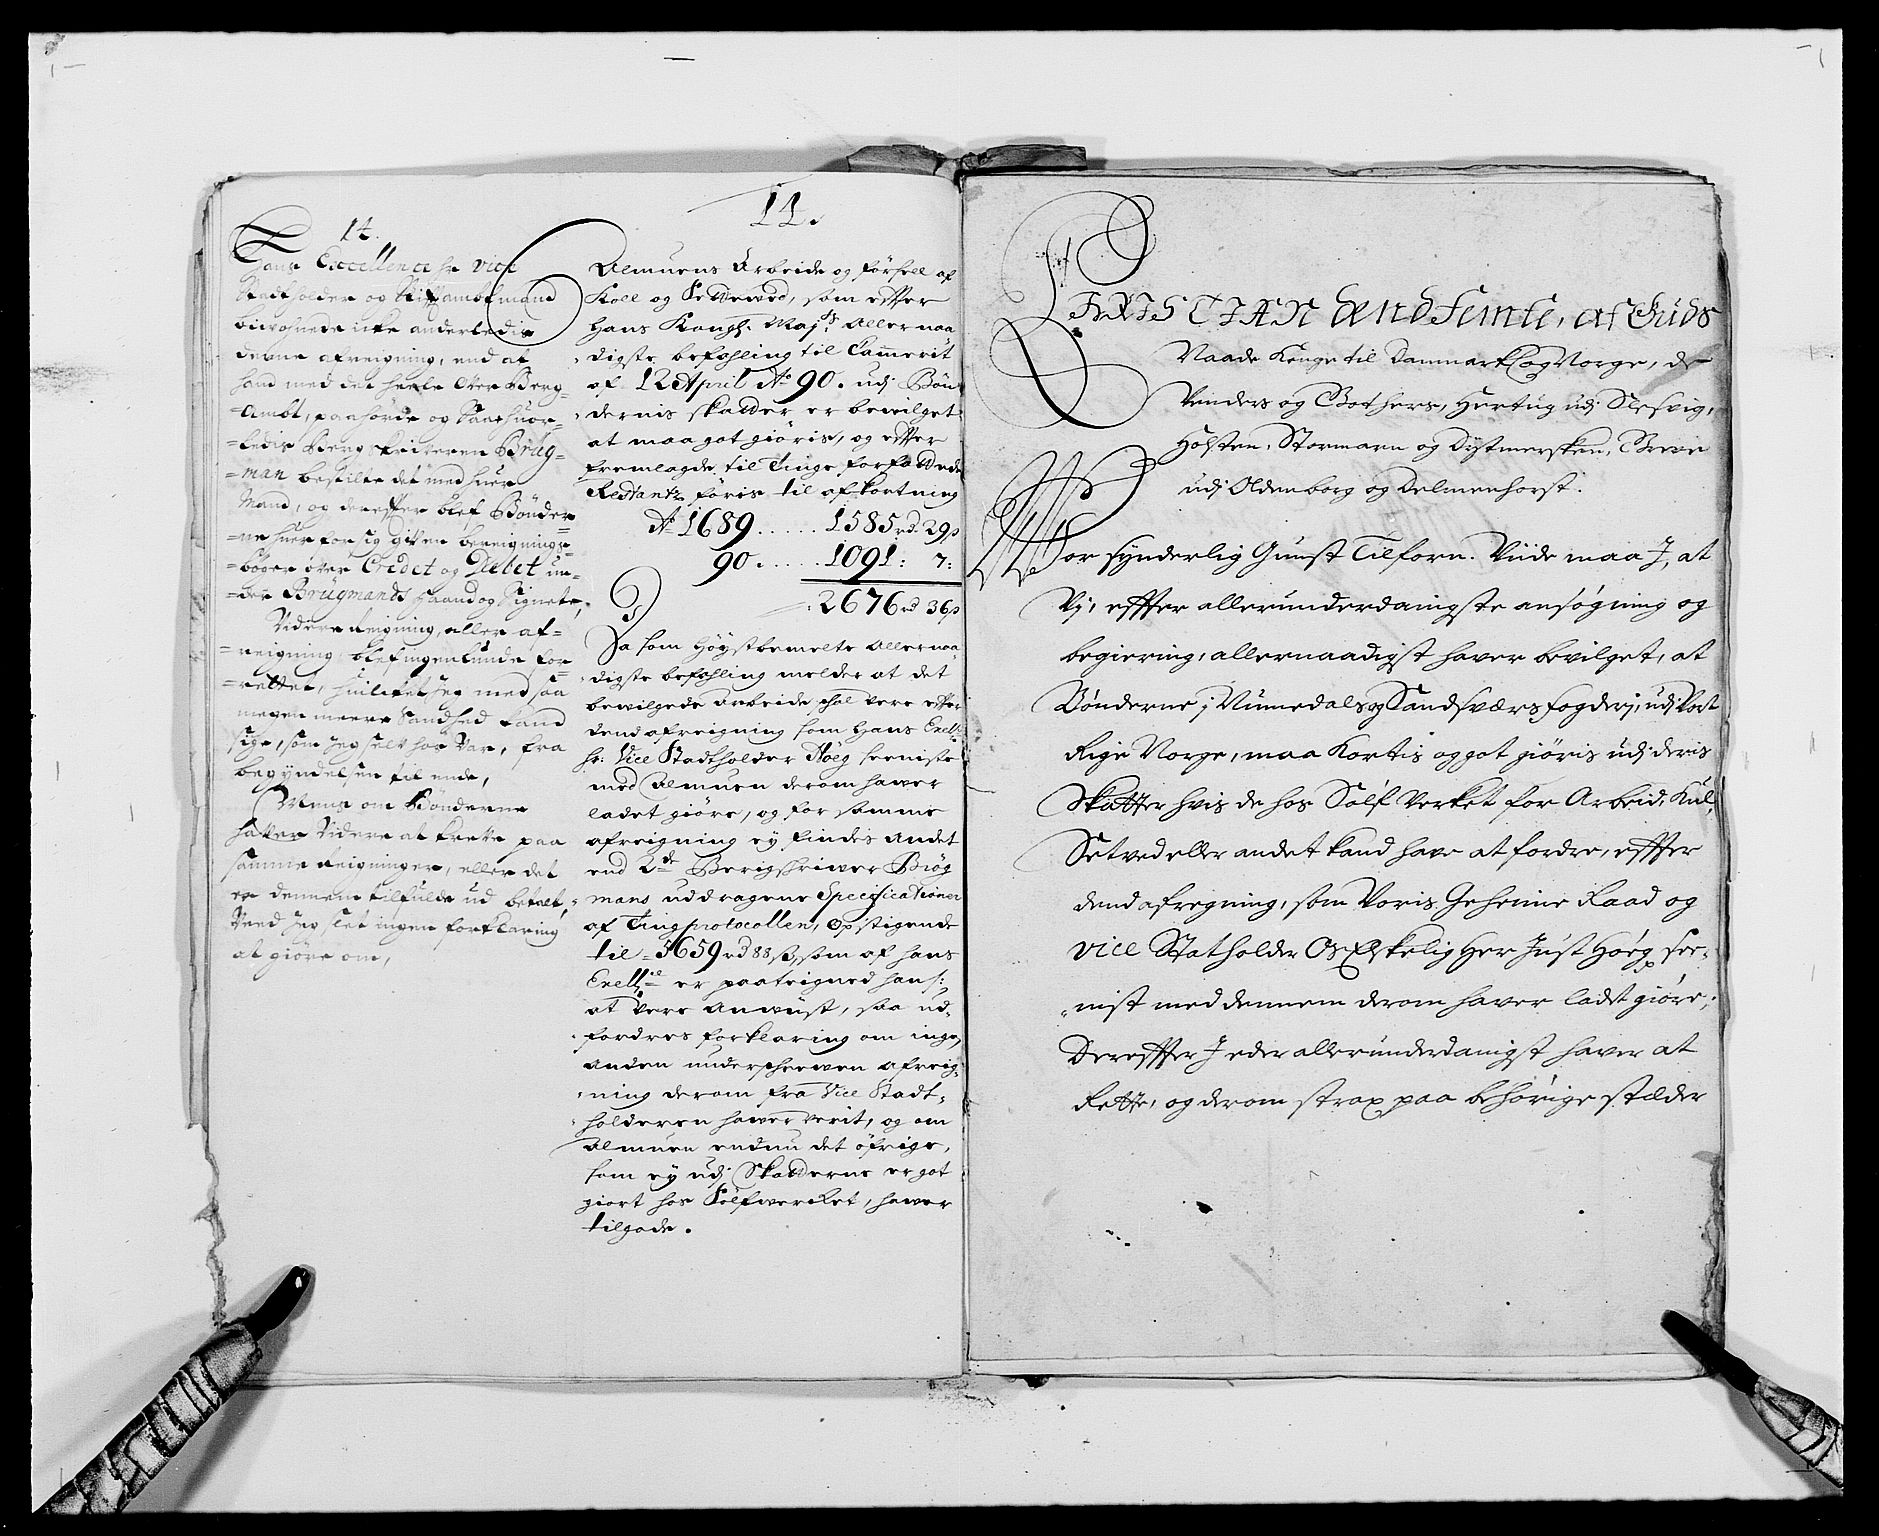 14.
Hans Excellence hr vice
Stadtholder og Stiftambtmand
biwohnede icke anderledis
denne afreigning, end at
hand med det heele Ober Berg-
=Ambt, paahörde og Saae huor-
=ledis Bergskriveren Brüg-
=man bestilte det med huer
Mand, og derefter blef Bönder-
=ne huer for sig given bereignings-
=böger över Credet og Debet un-
=der Brügmands Haand og Signete,
Videre Reigning, eller af-
=reigning blef ingenlunde for-
=rettet, huilket Jeg med saa
megen meere Sandhed kand
sige, som Jeg selv hos var, fra
begyndelsen til ende,
Mens om Bönderne
hafver Videre at prette paa
samme Reigninger, eller det
er dennem tilfulde ud betalt,
Veed Jeg slet ingen forklaring
at giöre om,
11.
Almuens Arbeide og förhsell af
Koll og Settewed, som efter
Hans Kongl. Mayts Allernaa
digste befahling til Cammerit
af 12 April Ao 90. udj Bön
dernis skatter er bewilget
at maa got giöris, og efter
fremlagde til Tinge forfattede
Restantz föris til afkortning
Ao 1689 . . . . . 1585 rd. 29 s
90 . . . . . 1091: 7:
2676 rd 36 s
Da som Höystbemelte Allernaa-
digste befahling melder at det
bewilgede Arbeide schal vere efter
dend afreigning som Hans Excell:
hr: Vice Stadtholder Höeg seeniste
med Almuen derom hawer
ladet giöre, og for samme
afreigning ey findes andet
end 2de Bergschriwer Brög
mans uddragene Specificationer
af Tingprotocollen, Opstigende
til 5659 rd 88 s, som af hans
Excellce er paateigned hans:
at vere Anwiist, saa ud-
fordres forklaring om ingen
anden underschrewen afreig-
ning derom fra Vice Stadt-
holderen hawer verit, og om
Almuen endnu det öfrige,
som ey udj Skatterne er got
giort hos Sölfwercket, hawer
tilgode.
CHRISTIAN dend Femte, af Guds
Naade Konge til Danmark og Norge, de
Venders og Gothers, Hertug udj Slesvig,
Holsten, Stormarn og Dytmersken, Grewe
udj Oldenborg og Delmenhorst.
Vor synderlig Gunst Tilforn. Viide maa J, at
Vj, effter allerunderdanigste ansøgning og
begiering, allernaadigst haver bevilget, at
Bønderne j Nummedals og Sandsværs fogderj, udj Vort
Rige Norge, maa Kortis og got giøris udj deris
Skatter hvis de hos Sølf Verket for Arbeid, Kul,
Setved eller andet kand have at fordre, effter
dend afregning, som Voris Geheime Raad og
vice Statholder Os Elskelig Her Just Høeg see-
nist med dennem derom haver ladet giøre;
Dereffter J eder allerunderdanigst haver at
Rette, og derom strax paa behørige stæder